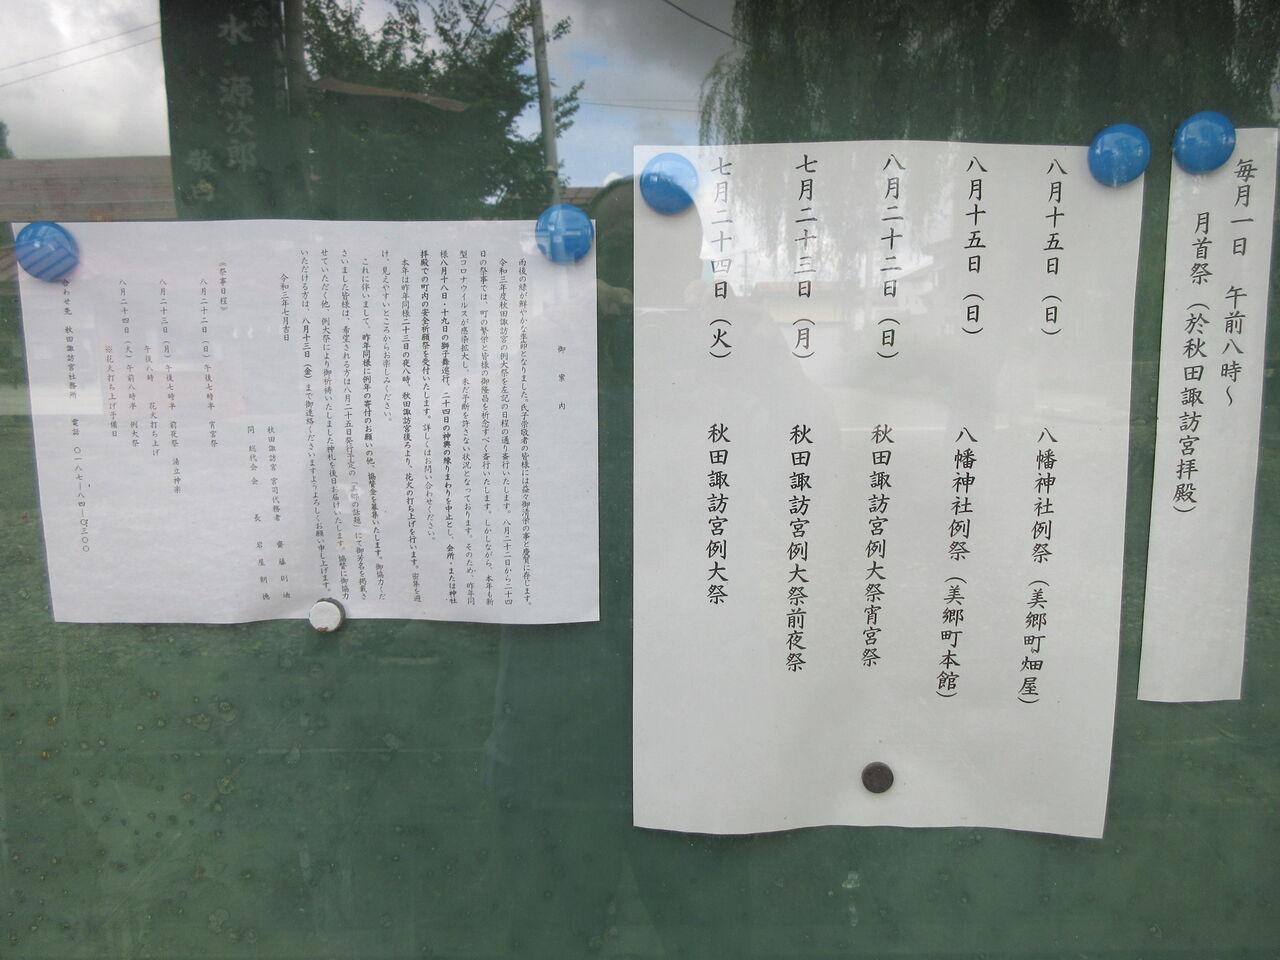 毎月一日　午前八時～
月首祭（於秋田諏訪宮拝殿）
八月十五日（日）　八幡神社例祭（美郷町畑屋）
八月十五日（日）　八幡神社例祭（美郷町本館）
八月二十二日（日）　秋田諏訪宮例大祭宵宮祭
七月二十三日（月）　秋田諏訪宮例大祭前夜祭
七月二十四日（火）　秋田諏訪宮例大祭
御案内
雨後の緑が鮮やかな季節となりました。氏子崇敬者の皆様には益々御清栄の事と慶賀に存じます。
令和三年度秋田諏訪宮の例大祭を左記の日程の通り斎行いたします。八月二十二日から二十四
日の祭事では、町の繁栄と皆様の御隆昌を祈念すべく斎行いたします。しかしながら、本年も新
型コロナウイルスが感染拡大し、未だ予断を許さない状況となっております。そのため、昨年同
様八月十八日・十九日の獅子舞巡行、二十四日の神輿の練りまわりを中止とし、会所・または神社
拝殿での町内の安全祈願祭を受付いたします。詳しくはお問い合わせください。
本年は昨年同様二十三日の夜八時、秋田諏訪宮後ろより、花火の打ち上げを行います。密集を避
け、見えやすいところからお楽しみください。
これに伴いまして、昨年同様に例年の寄付のお願いの他、協賛金を募集いたします。御協力くだ
さいました皆様は、希望される方は八月二十五日発行予定の「美郷の話題」にて御芳名を掲載さ
せていただく他、例大祭により御祈祷いたしました神札を後日お届けいたします。協賛に御協力
いただける方は、八月十三日（金）まで御連絡くださいますようよろしくお願い申し上げます。
令和三年七月吉日
秋田諏訪宮　宮司代務者　齋藤
同　総代会　会長　岩屋朝徳
《祭事日程》
八月二十二日（日）午後七時半　宵宮祭
八月二十三日（月）午後七時半　前夜祭　湯立神楽
午後八時　花火打ち上げ
八月二十四日（火）午前八時半　例大祭
※花火打ち上げ予備日
合わせ先　秋田諏訪宮社務所　電話　〇一八七―八四―〇三〇〇
水　源次郎
敬白